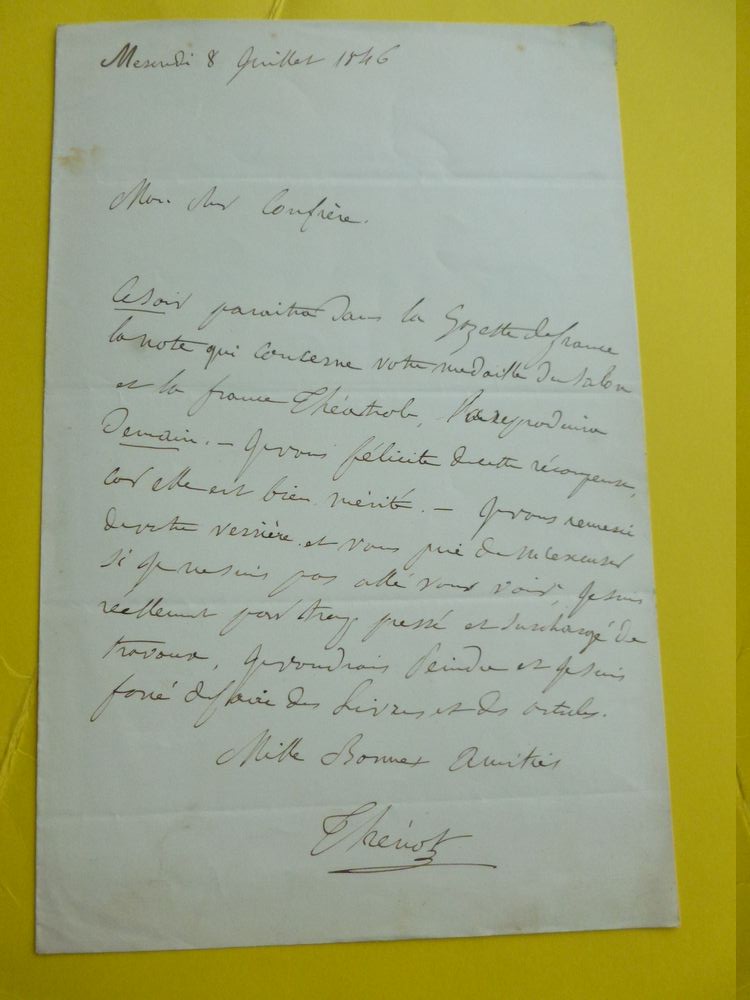 Mercredi 8 Juillet 1846
Mon cher Confrère.
Ce Soir paraitra dans la Gazette de france
la note qui concerne votre medaille du Salon
et la france Théatrale, la reproduira
Demain. – Je vous félicite de cette récompense,
car elle est bien mérité. – Je vous remercie
de votre verrière et vous prie de m'excuser
si je ne suis pas allé vous voir, Je suis
reellement par trop pressé et surchargé de
travaux, Je voudrais Peindre et Je suis
forcé de faire des Livres et des articles.
Mille Bonnes Amitiés
Thénot